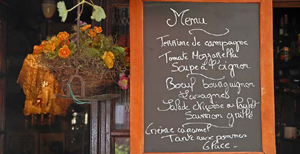 Menu
Terrine de campagne
Tomate Mozzarella
Soupe à l'oignon
Boeuf bourguignon
Lasagnes
Salade Niçoise ou
Saumon grillé
Crème caramel
Tarte aux pommes
Glace